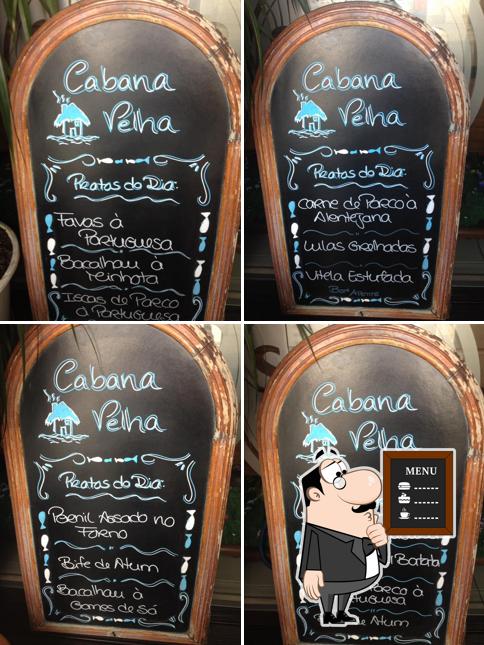 Cabana
Velha
Pratos do Dia:
Favas à
Portuguesa
Bacalhau à
Meinhota
Iscas de Porco
à Portuguesa
Cabana
Velha
Pratos do Dia:
Carne de Porco à
Alentejana
Lulas Grelhadas
Vitela Estufada
Bom Apetite
Cabana
Velha
Pratos do Dia:
Pernil Assado no
Forno
Bife de Atum
Bacalhau à
Gomes de Sá
Cabana
Velha
MENU
Batata
Porco à
Atum